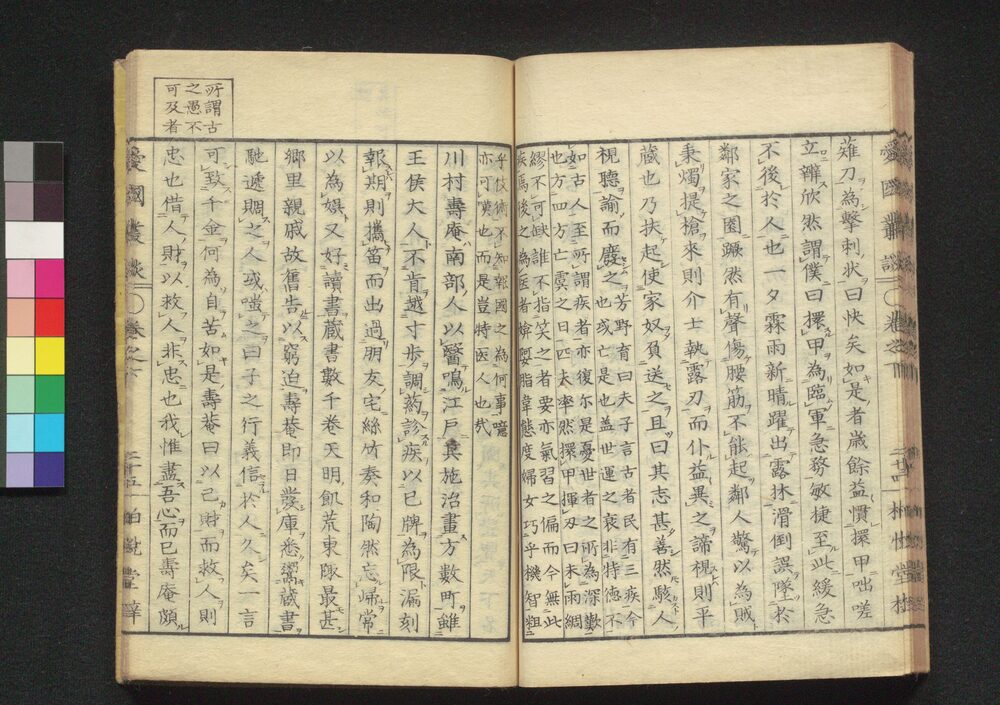 薙刀為擊刺状曰快矣如是者歳餘益慣擐甲咄嗟
立辦欣然謂僕曰擐甲為臨軍急務敏捷至此緩急
不後於人也一夕霖雨新晴躍出露牀滑倒誤墜於
鄰家之園蹶然有聲傷腰筋不能起鄰人驚以為賊
秉燭提槍來則介士執露刃而仆益異之諦視則平
蔵也乃扶起使家奴負送之且曰其志甚善然駭人
視聽諭而廢之芳野育曰夫子言古者民有三疾今
也或亡是也盖世運之衰非特德不
如古人至所謂疾者亦復尓是憂世者之所為深歎
也方四方亡虞之日匹夫率然擐甲揮刃曰未雨綢
繆不可缺誰不指笑之者要亦氣習之偏而今無此
疾焉後之為医者媕婀脂韋態度婦女巧乎機智粗
乎伎術不知報國之為何事噫
亦可嘆也而是豈特医人也哉
川村壽庵南部人以醫鳴江戸糞施治畫方數町雖
王侯大人不肯越寸歩調葯診疾以巳牌為限漏刻
報期則攜笛而出過朋友宅絲竹奏和陶然忘歸常
以為娯又好讀書蔵書數千巻天明飢荒東陬最甚
鄉里親戚故舊告以窮迫壽菴即日發庫悉鬻蔵書
馳遞賙之人或嗤之曰子之行義信於人久矣一言
可致千金何為自苦如是壽菴曰以己財而救人則
忠也借人財以救人非忠也我惟盡吾心而已壽庵頗
所謂古
之愚不
可及者
愛國叢談 〇 卷之六 二十五